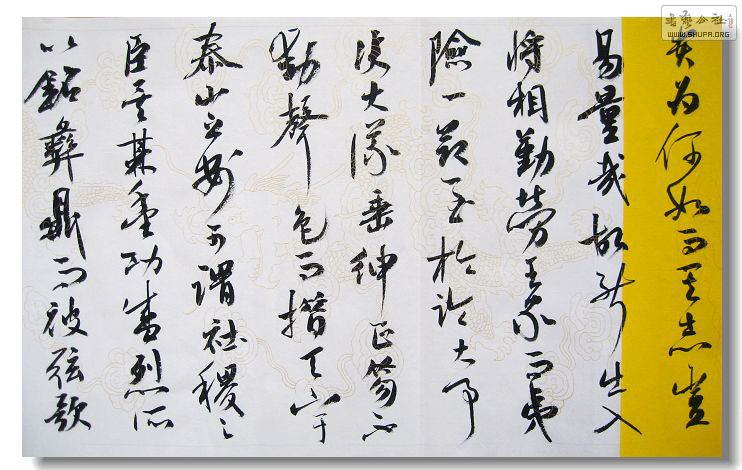 書藝公社
WWW.SHUFA.ORG
矣为何如而其志豈
易量哉故能出入
将相勤勞王家而夷
險一節至於临大事
决大議垂紳正笏不
動聲色而措天下于
泰山之安可謂社稷之
臣矣其豐功盛烈所
以銘彝鼎而被弦歌